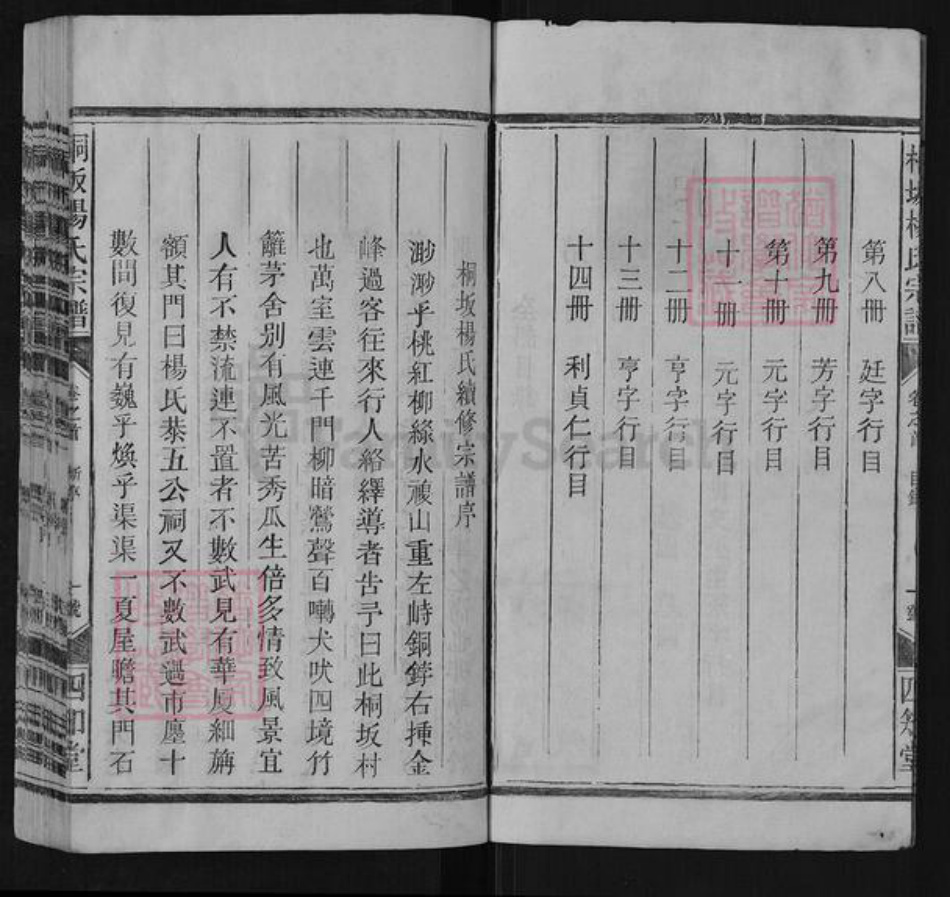 第八冊 廷字行目
第九冊 芳字行目
第十冊 元字行目
十一冊 元字行目
十二冊 亨字行目
十三冊 亨字行目
十四冊 利貞仁行目
四知堂
桐坂楊氏續修宗譜序
渺渺乎桃紅柳綠水複山重左峙銅鋍右揷金
峰過客往來行人絡繹導者告予曰此桐坂村
也萬室雲連千門柳暗鶯聲百囀犬吠四境竹
籬茅舍别有風光苦秀瓜生倍多情致風景宜
人有不禁流連不置者不數武見有華厦細旃
額其門曰楊氏恭五公祠又不數武過市廛十
數間復見有巍乎煥乎渠渠一夏屋瞻其門石
桐坂楊氏宗譜 卷之首 新序 一號 四知堂
FamilySearch